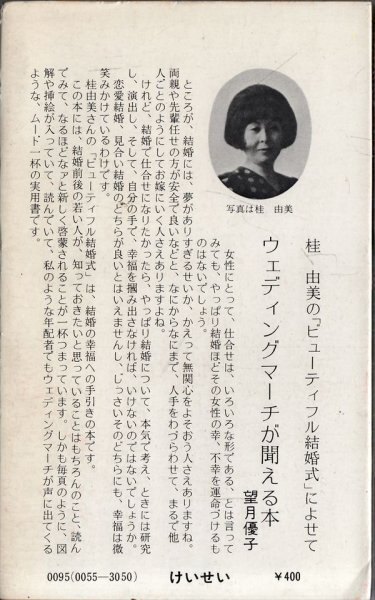 桂 由美の『ビューティフル結婚式』によせて
ウェディングマーチが聞える本
望月優子
写真は桂 由美
女性にとって、仕合せは、いろいろな形である、とは言って
みても、やっぱり結婚ほどその女性の幸、不幸を運命づけるも
のはないでしょう。
ところが、結婚には、夢がありすぎるせいか、かえって無関心をよそおう人さえありますね。
両親や先輩任せの方が安全で良いなどと、なにからなにまで、人手をわづらわせて、まるで他
人ごとのようにしてお嫁にいく人さえありますよね。
けれど、結婚で仕合せになりたかったら、やっぱり結婚について、本気で考え、ときには研究
し、演出し、そして、自分の手で、幸福を掴み出さなければ、いけないのではないでしょうか。
恋愛結婚、見合い結婚のどちらが良いとはいえませんし、じっさいそのどちらにも、幸福は微
笑みかけているわけです。
桂由美さんの『ビューティフル結婚式』は、結婚の幸福への手引きの本です。
この本には、結婚前後の若い人が、知っておきたいと思っていることはもちろんのこと、読ん
でみて、なるほどなァと新しく啓蒙されることが一杯つまっています。しかも毎頁のように、図
解や挿絵が入っていて、読んでいて、私のような年配者でもウェディングマーチが声に出てくる
ような、ムード一杯の実用書です。
0095(0055—3050)
けいせい
¥400